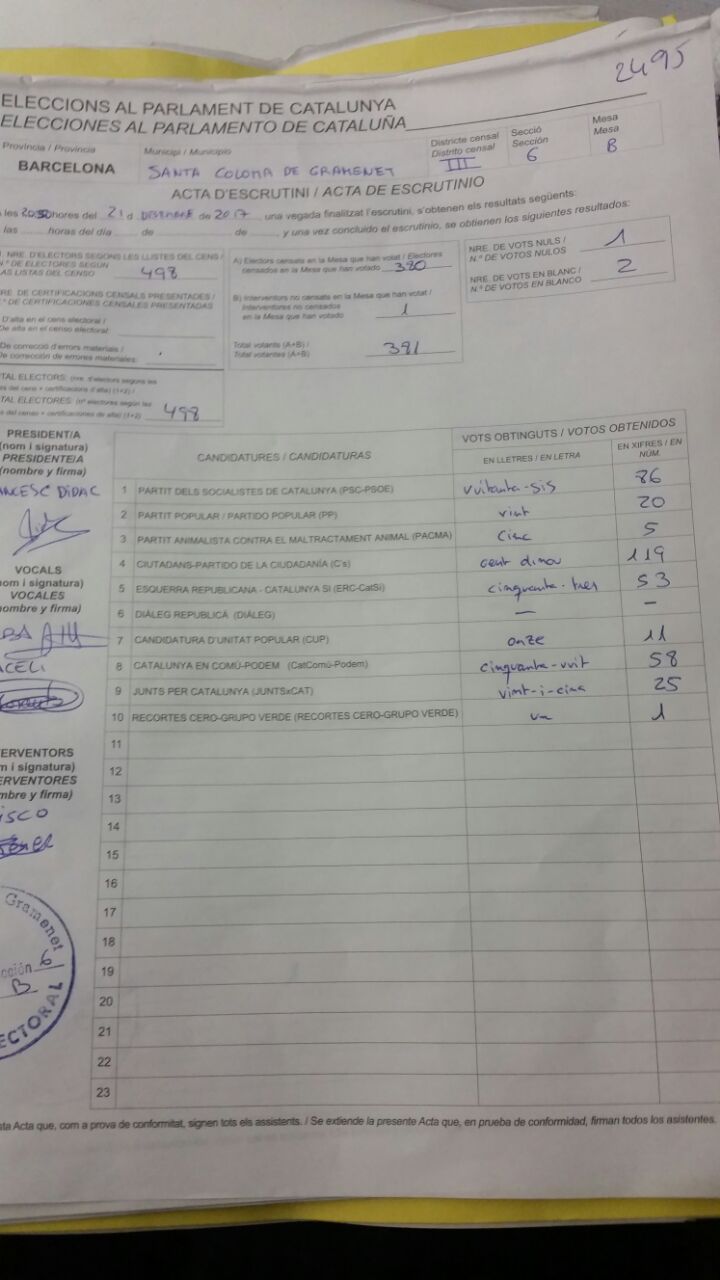 2495
ELECCIONS AL PARLAMENT DE CATALUNYA
ELECCIONES AL PARLAMENTO DE CATALUÑA
Província / Provincia
BARCELONA
Municipi / Municipio
SANTA COLOMA DE GRAMENET
Districte censal
Distrito censal
III
Secció
Sección
6
Mesa
Mesa
B
ACTA D'ESCRUTINI / ACTA DE ESCRUTINIO
les 20:50 hores del 21 d DESEMBRE de 2017, una vegada finalitzat l'escrutini, s'obtenen els resultats següents:
las ........ horas del día ........ de ........ de ........, y una vez concluido el escrutinio, se obtienen los siguientes resultados:
NRE. D'ELECTORS SEGONS LES LLISTES DEL CENS /
N.º DE ELECTORES SEGÚN
LAS LISTAS DEL CENSO 498
RE. DE CERTIFICACIONS CENSALS PRESENTADES /
º DE CERTIFICACIONES CENSALES PRESENTADAS
D'alta en el cens electoral /
De alta en el censo electoral:
De correcció d'errors materials /
De corrección de errores materiales:
TAL ELECTORS: (nre. d'electors segons les
es del cens + certificacions d'alta) (1+2) /
TAL ELECTORES: (nº electores según las
s del censo + certificaciones de alta) (1+2) 498
A) Electors censats en la Mesa que han votat / Electores
censados en la Mesa que han votado 380
B) Interventors no censats en la Mesa que han votat /
Interventores no censados
en la Mesa que han votado 1
Total votants (A+B) /
Total votantes (A+B) 381
NRE. DE VOTS NULS /
N.º DE VOTOS NULOS 1
NRE. DE VOTS EN BLANC /
N.º DE VOTOS EN BLANCO 2
PRESIDENT/A
(nom i signatura)
PRESIDENTE/A
(nombre y firma)
NCESC DIDAC
VOCALS
nom i signatura)
VOCALES
nombre y firma)
ACELI
ERVENTORS
m i signatura)
ERVENTORES
mbre y firma)
ISCO
Gramenet
cción 6
B
ECTORAL
CANDIDATURES / CANDIDATURAS
VOTS OBTINGUTS / VOTOS OBTENIDOS
EN LLETRES / EN LETRA
EN XIFRES / EN
NÚM.
1 PARTIT DELS SOCIALISTES DE CATALUNYA (PSC-PSOE) vuitanta-sis 86
2 PARTIT POPULAR / PARTIDO POPULAR (PP) vint 20
3 PARTIT ANIMALISTA CONTRA EL MALTRACTAMENT ANIMAL (PACMA) cinc 5
4 CIUTADANS-PARTIDO DE LA CIUDADANÍA (C's) cent dinou 119
5 ESQUERRA REPUBLICANA - CATALUNYA SÍ (ERC-CatSí) cinquanta-tres 53
6 DIÀLEG REPUBLICÀ (DIÀLEG) — —
7 CANDIDATURA D'UNITAT POPULAR (CUP) onze 11
8 CATALUNYA EN COMÚ-PODEM (CatComú-Podem) cinquanta-vuit 58
9 JUNTS PER CATALUNYA (JUNTSxCAT) vint-i-cinc 25
10 RECORTES CERO-GRUPO VERDE (RECORTES CERO-GRUPO VERDE) un 1
11
12
13
14
15
16
17
18
19
20
21
22
23
ta Acta que, com a prova de conformitat, signen tots els assistents. / Se extiende la presente Acta que, en prueba de conformidad, firman todos los asistentes.